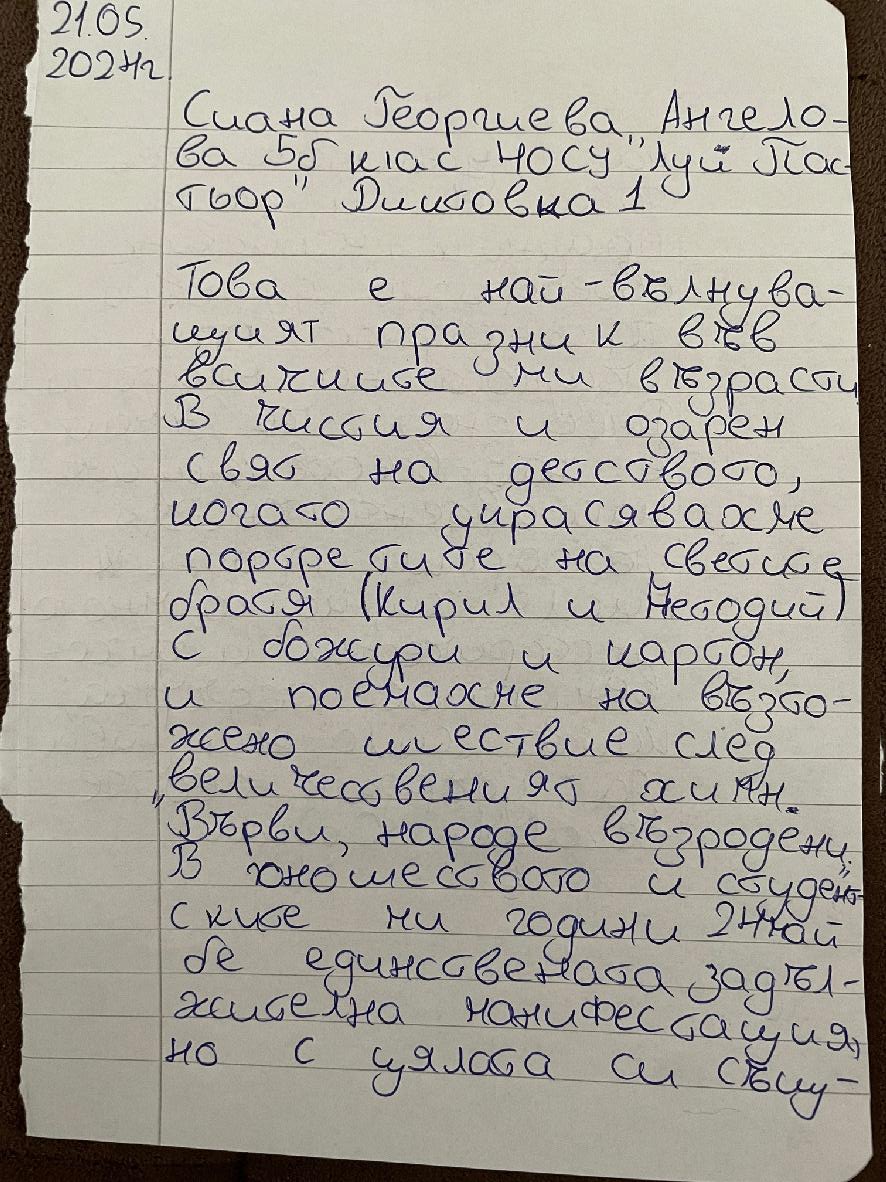 21.05.
2024г.
Сиана Георгиева Ангело-
ва 5б клас ЧОСУ "Луи Пас-
тьор" Диктовка 1
Това е най-вълнува-
щият празник във
всичките ми възрасти.
В чистия и озарен
свят на детството,
когато украсявахме
портретите на светите
братя (Кирил и Методий)
с божури и картон,
и поемахме на възто-
жено шествие след
величественият химн.
„Върви, народе възродени.”
В юношеството и студент-
ските ми години 24май
бе единствената задъл-
жителна манифестация,
но с цялата си същу-